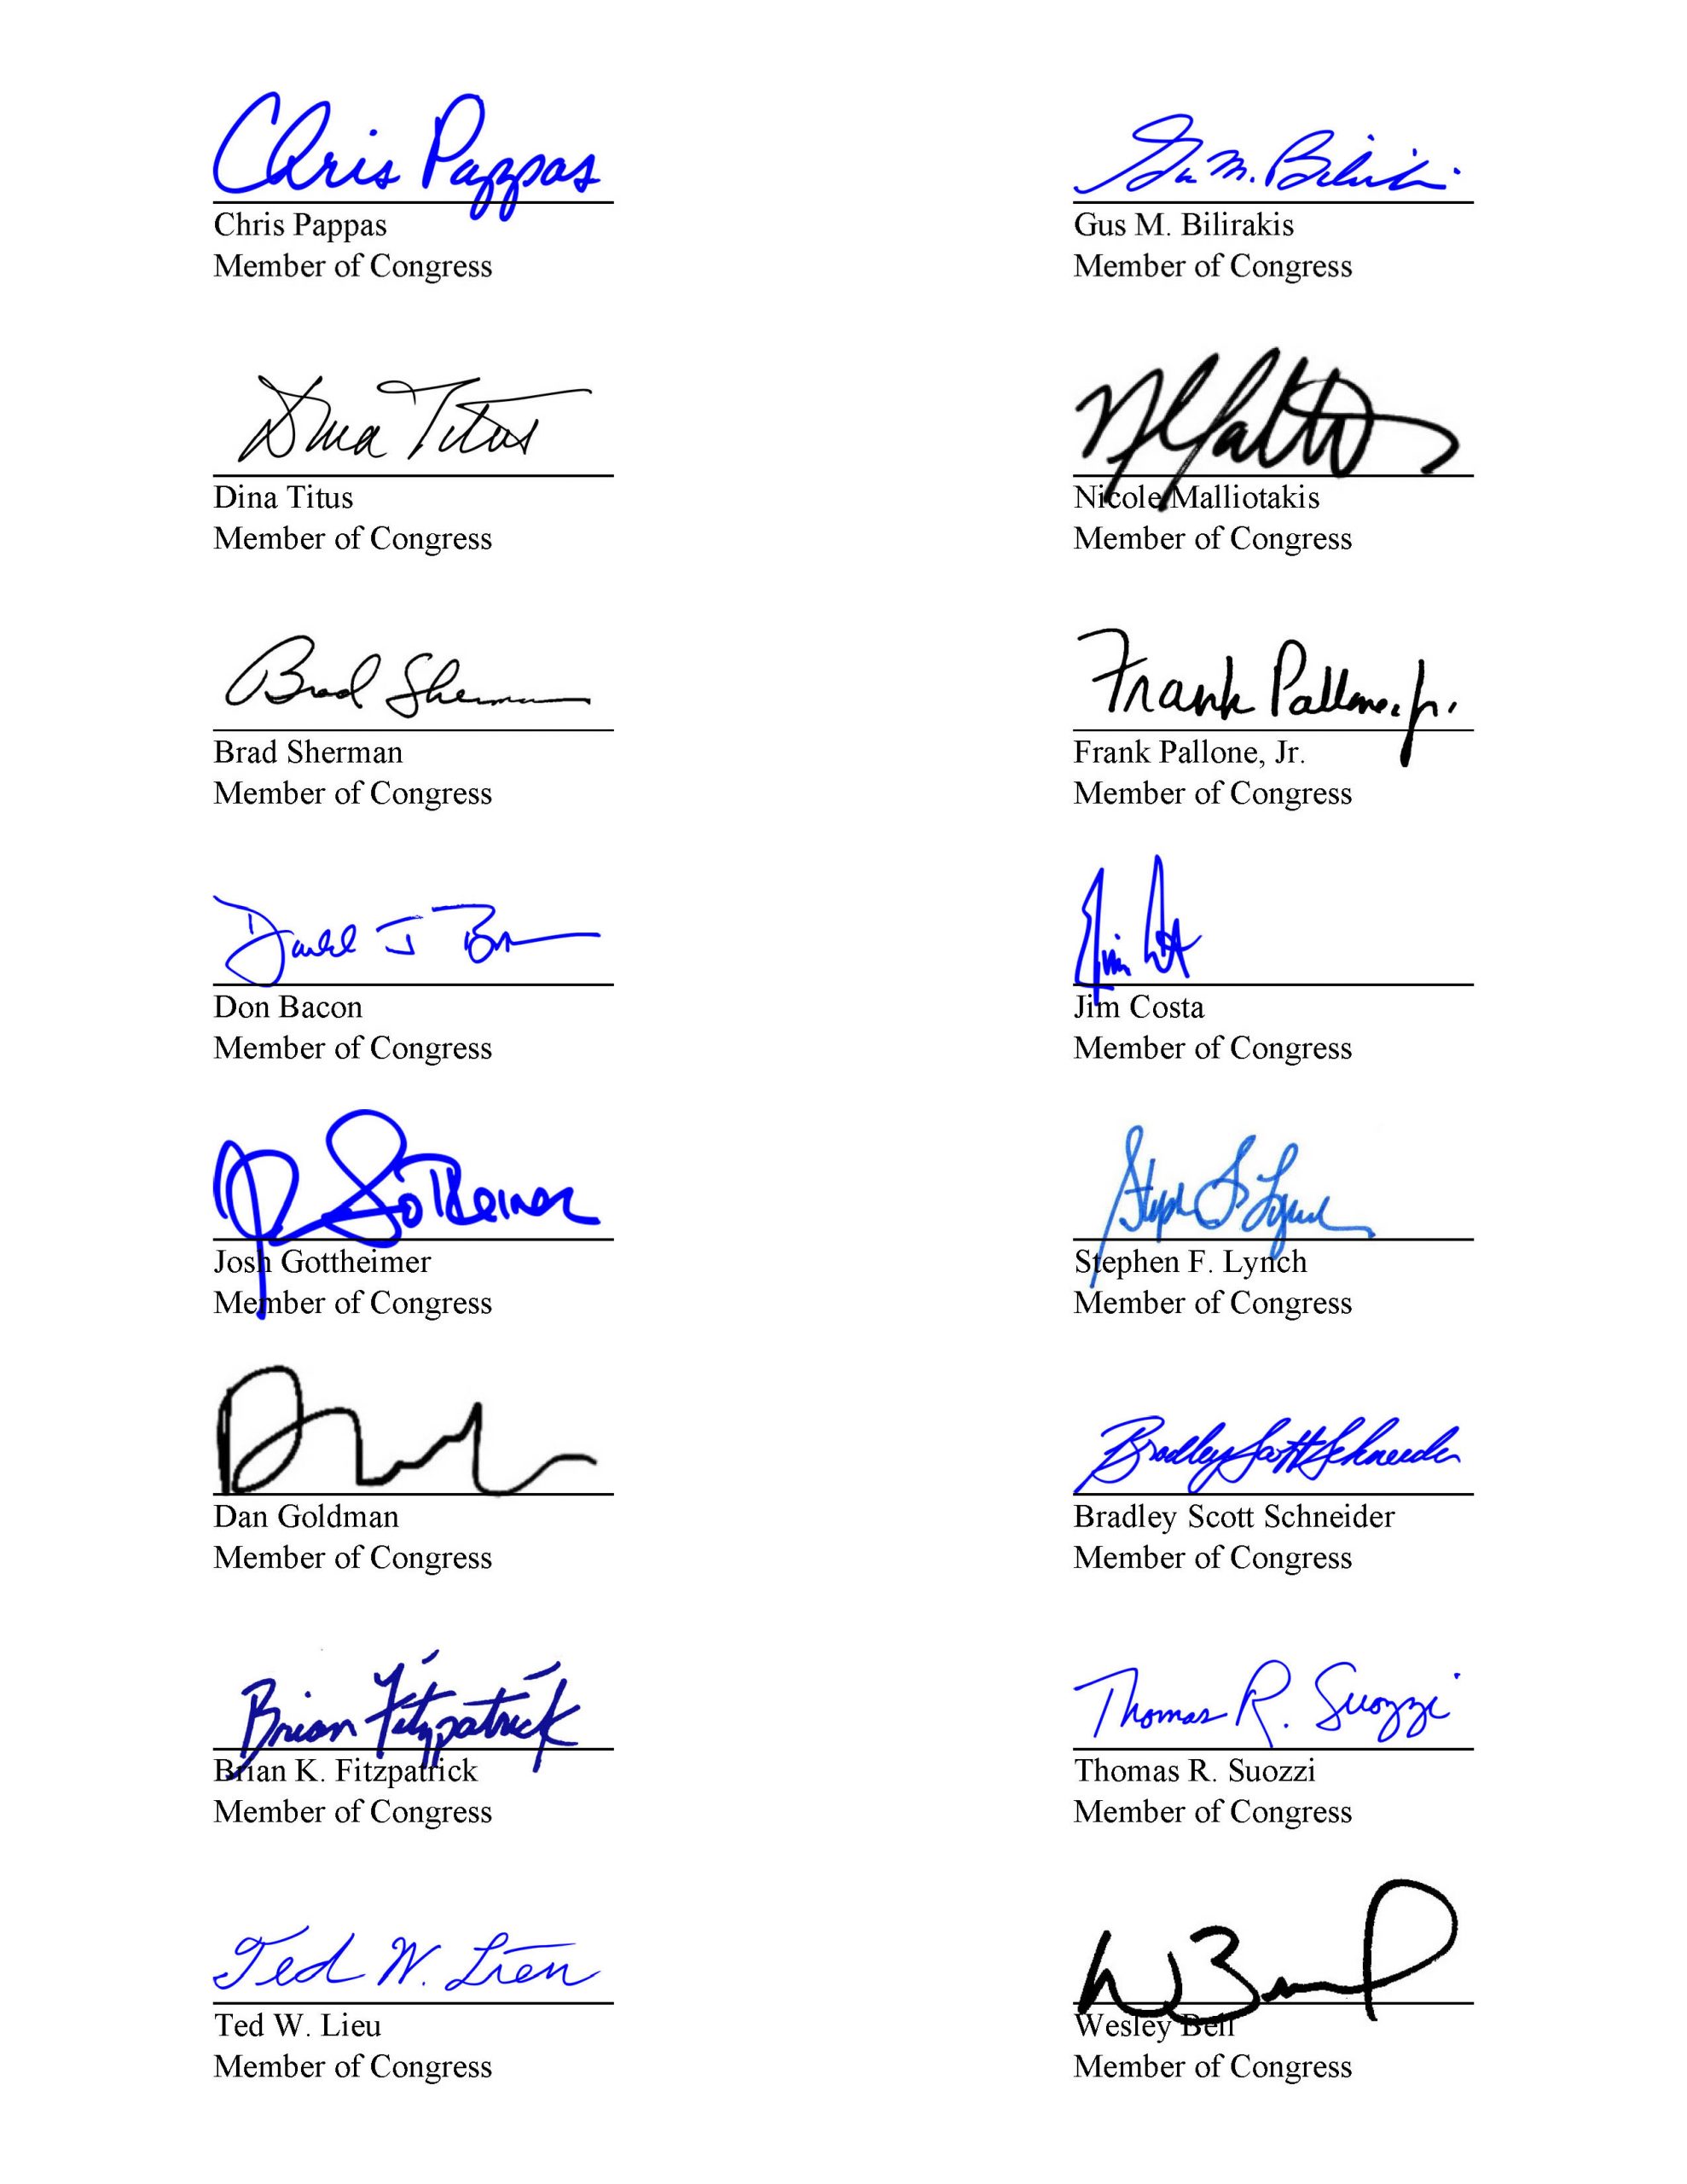 Chris Pappas
Chris Pappas
Member of Congress
Gus M. Bilirakis
Gus M. Bilirakis
Member of Congress
Dina Titus
Dina Titus
Member of Congress
Nicole Malliotakis
Member of Congress
Brad Sherman
Brad Sherman
Member of Congress
Frank Pallone, Jr.
Frank Pallone, Jr.
Member of Congress
Don Bacon
Member of Congress
Jim Costa
Jim Costa
Member of Congress
Gottheimer
Josh Gottheimer
Member of Congress
Stephen F. Lynch
Stephen F. Lynch
Member of Congress
Dan Goldman
Member of Congress
Bradley Scott Schneider
Bradley Scott Schneider
Member of Congress
Brian Fitzpatrick
Brian K. Fitzpatrick
Member of Congress
Thomas R. Suozzi
Thomas R. Suozzi
Member of Congress
Ted W. Lieu
Ted W. Lieu
Member of Congress
Wesley Bell
Member of Congress